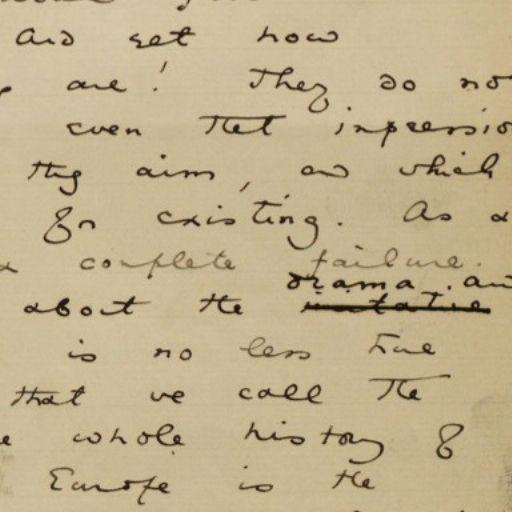 and yet how
are! They do no
even that impressio
they aim, and which
for existing. As a
a complete failure.
drama. an
about the imitative
is no less true
that we call the
e whole history of
Europe is the